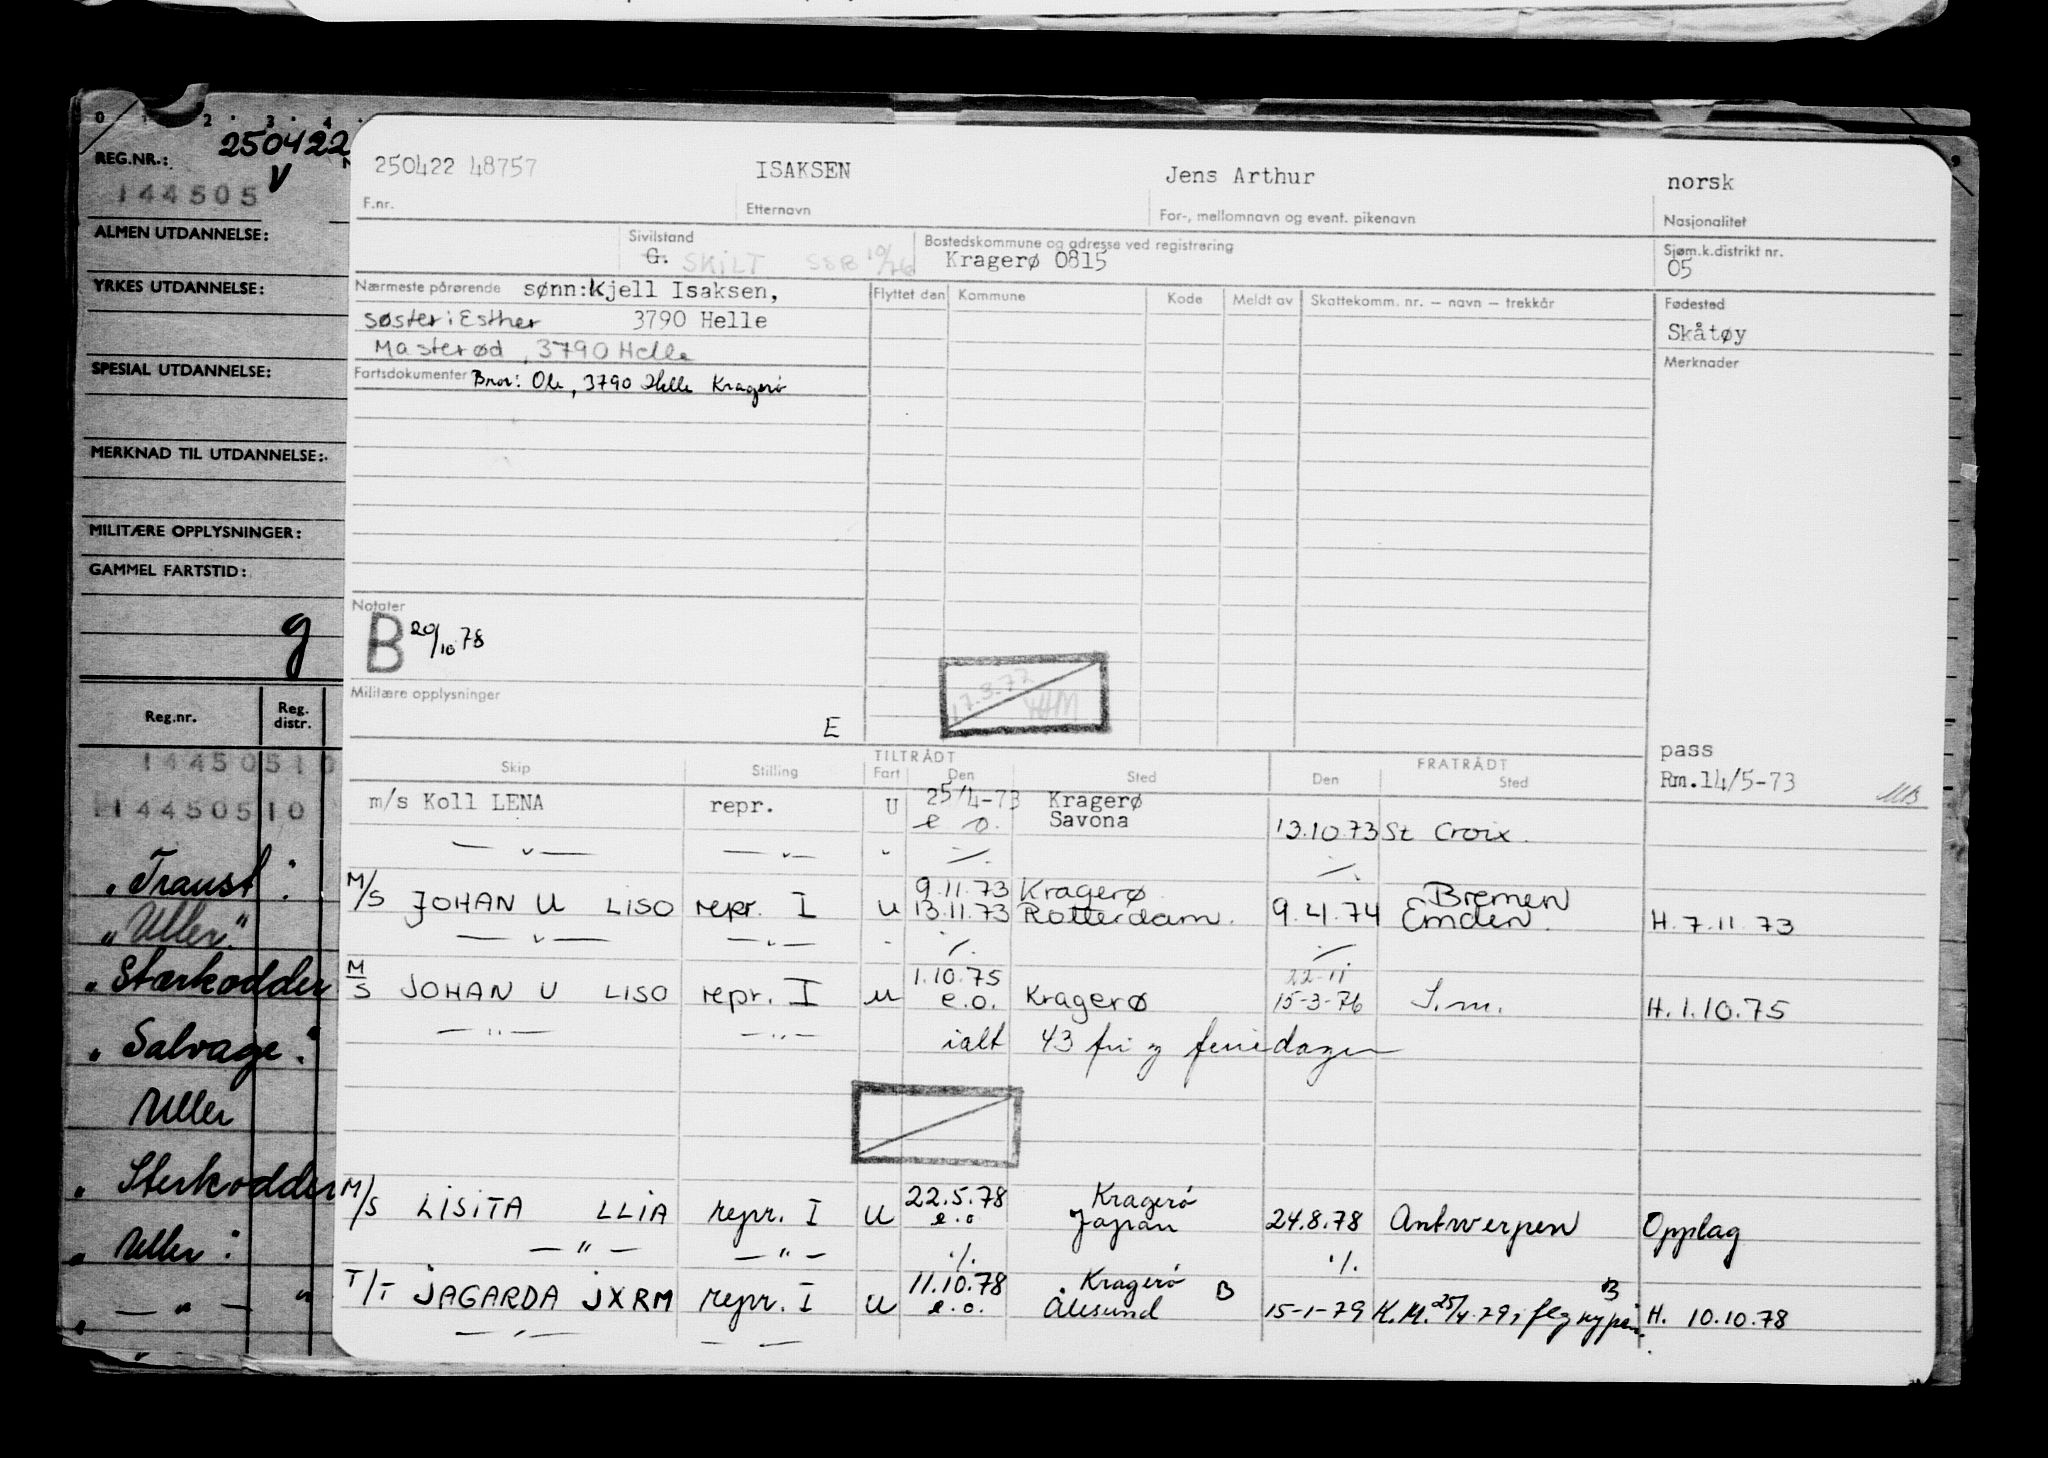 0 1 2 3 4 9
250422
REG.NR.:
V
144505
ALMEN UTDANNELSE:
YRKES UTDANNELSE:
SPESIAL UTDANNELSE:
MERKNAD TIL UTDANNELSE:
MILITÆRE OPPLYSNINGER:
GAMMEL FARTSTID:
g
Reg.nr. Reg. distr.
14450510
14450510
"Traust"
"Uller"
"Stærkodder
"Salvage"
Uller
"Sterkodder
"Uller"
— " — "
250422 48757 ISAKSEN Jens Arthur norsk
F.nr. Etternavn For-, mellomnavn og event. pikenavn Nasjonalitet
Sivilstand Bostedskommune og adresse ved registrering Sjøm.k.distrikt nr.
G. SKILT SSB 10/76 Kragerø 0815 05
Nærmeste pårørende sønn:Kjell Isaksen, Flyttet den Kommune Kode Meldt av Skattekomm. nr. – navn – trekkår Fødested
søster: Esther 3790 Helle Skåtøy
Masterød, 3790 Helle Merknader
Fartsdokumenter Bror: Ole, 3790 Helle Kragerø
Notater
B 20/10 78
17.3.77 HM
Militære opplysninger
E
TILTRÅDT FRATRÅDT pass
Skip Stilling Fart Den Sted Den Sted Rm.14/5-73
m/s Koll LENA repr. U 25/4-73 Kragerø
e o. Savona 13.10.73 St Croix.
— " — — " — " ./. ./.
M/S JOHAN U LISO repr. I U 9.11.73 Kragerø Bremen
13.11.73 Rotterdam. 9.4.74 Emden. H. 7.11.73
— " — — " — ./. ./.
M/S JOHAN U LISO repr. I U 1.10.75 22-11
e.o. Kragerø 15-3-76 S.m. H. 1.10.75
— " — — " — ialt 43 fri og feriedager
M/S LISITA LLIA repr. I U 22.5.78 Kragerø
e.o Japan 24.8.78 Antwerpen Opplag
— " — — " — ./. ./.
T/T JAGARDA JXRM repr. I U 11.10.78 Kragerø B B
e.o. Ålesund 15-1-79 K.M. 25/4.79, H. 10.10.78
— " — — —